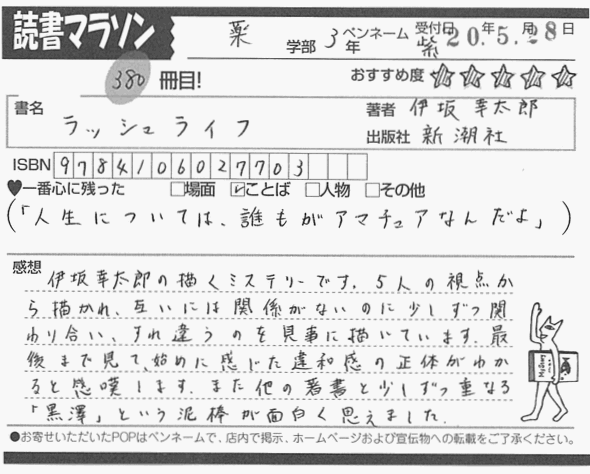 読書マラソン
薬 学部 3年 ペンネーム 紫 受付日 20年5.月28日
380 冊目! おすすめ度 ☆☆☆☆☆
書名 ラッシュライフ
著者 伊坂幸太郎
出版社 新潮社
ISBN 9784106027703
♥一番心に残った □場面 ☑ことば □人物 □その他
(「人生については、誰もがアマチュアなんだよ」)
感想
伊坂幸太郎の描くミステリーです。5人の視点か
ら描かれ、互いには関係がないのに少しずつ関
わり合い、すれ違うのを見事に描いています。最
後まで見て、始めに感じた違和感の正体がわか
ると感嘆します。また他の著書と少しずつ重なる
「黒澤」という泥棒が面白く思えました。
●お寄せいただいたPOPはペンネームで、店内で掲示、ホームページおよび宣伝物への転載をご了承ください。